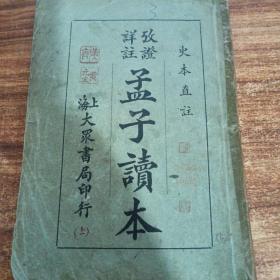 史本直註
攷證
詳註
孟子讀本
上海大眾書局印行
(上)